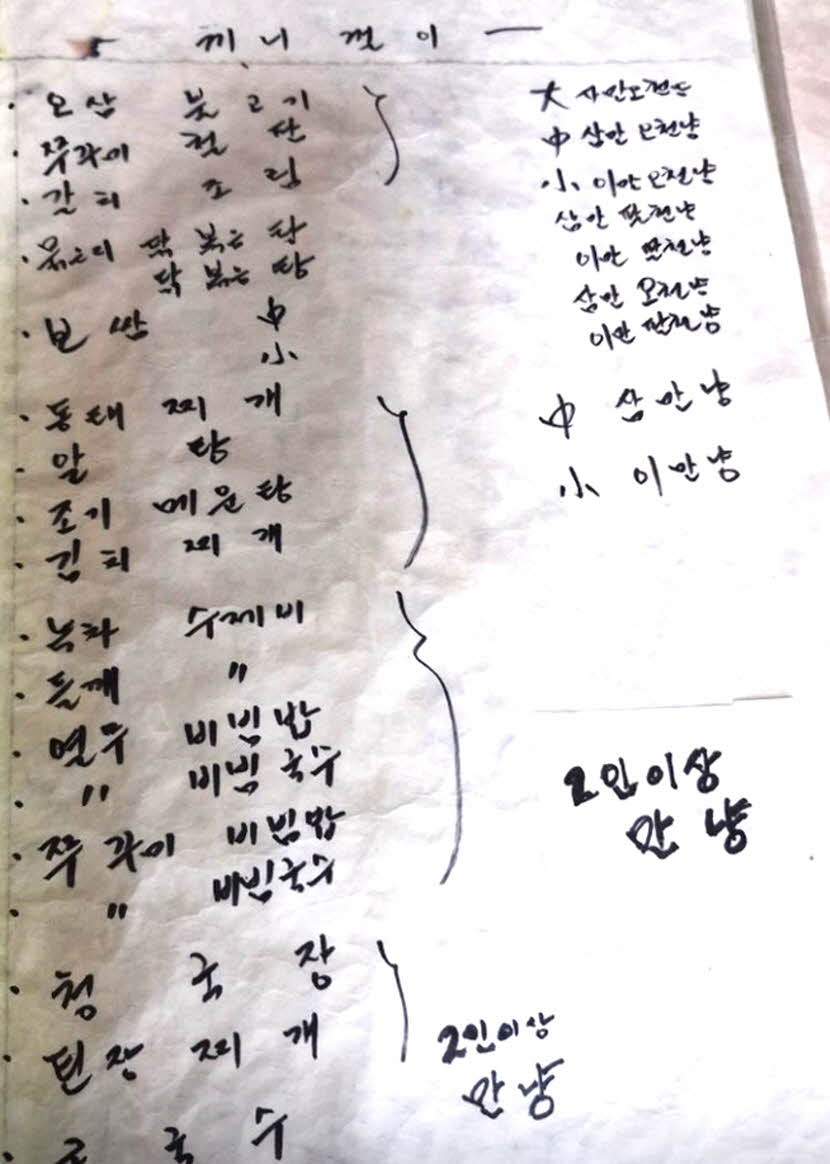 끼니 껄이 —
· 오삼 불고기 大 사만오천냥
· 쭈꾸미 철판 中 삼만 오천냥
· 갈치 조림 小 이만 오천냥
· 묵은지 닭 볶음 탕 삼만 팔천냥
닭 볶음 탕 이만 팔천냥
· 보쌈 中 삼만 오천냥
小 이만 팔천냥
· 동태 찌개 中 삼만냥
· 알 탕
· 조기 메운탕 小 이만냥
· 김치 찌개
· 녹차 수제비
· 들깨 "
· 열무 비빔밥
· " 비빔국수 2인이상
· 쭈꾸미 비빔밥 만 냥
· " 비빔국수
· 청국장
· 된장 찌개 2인이상
만 냥
국수